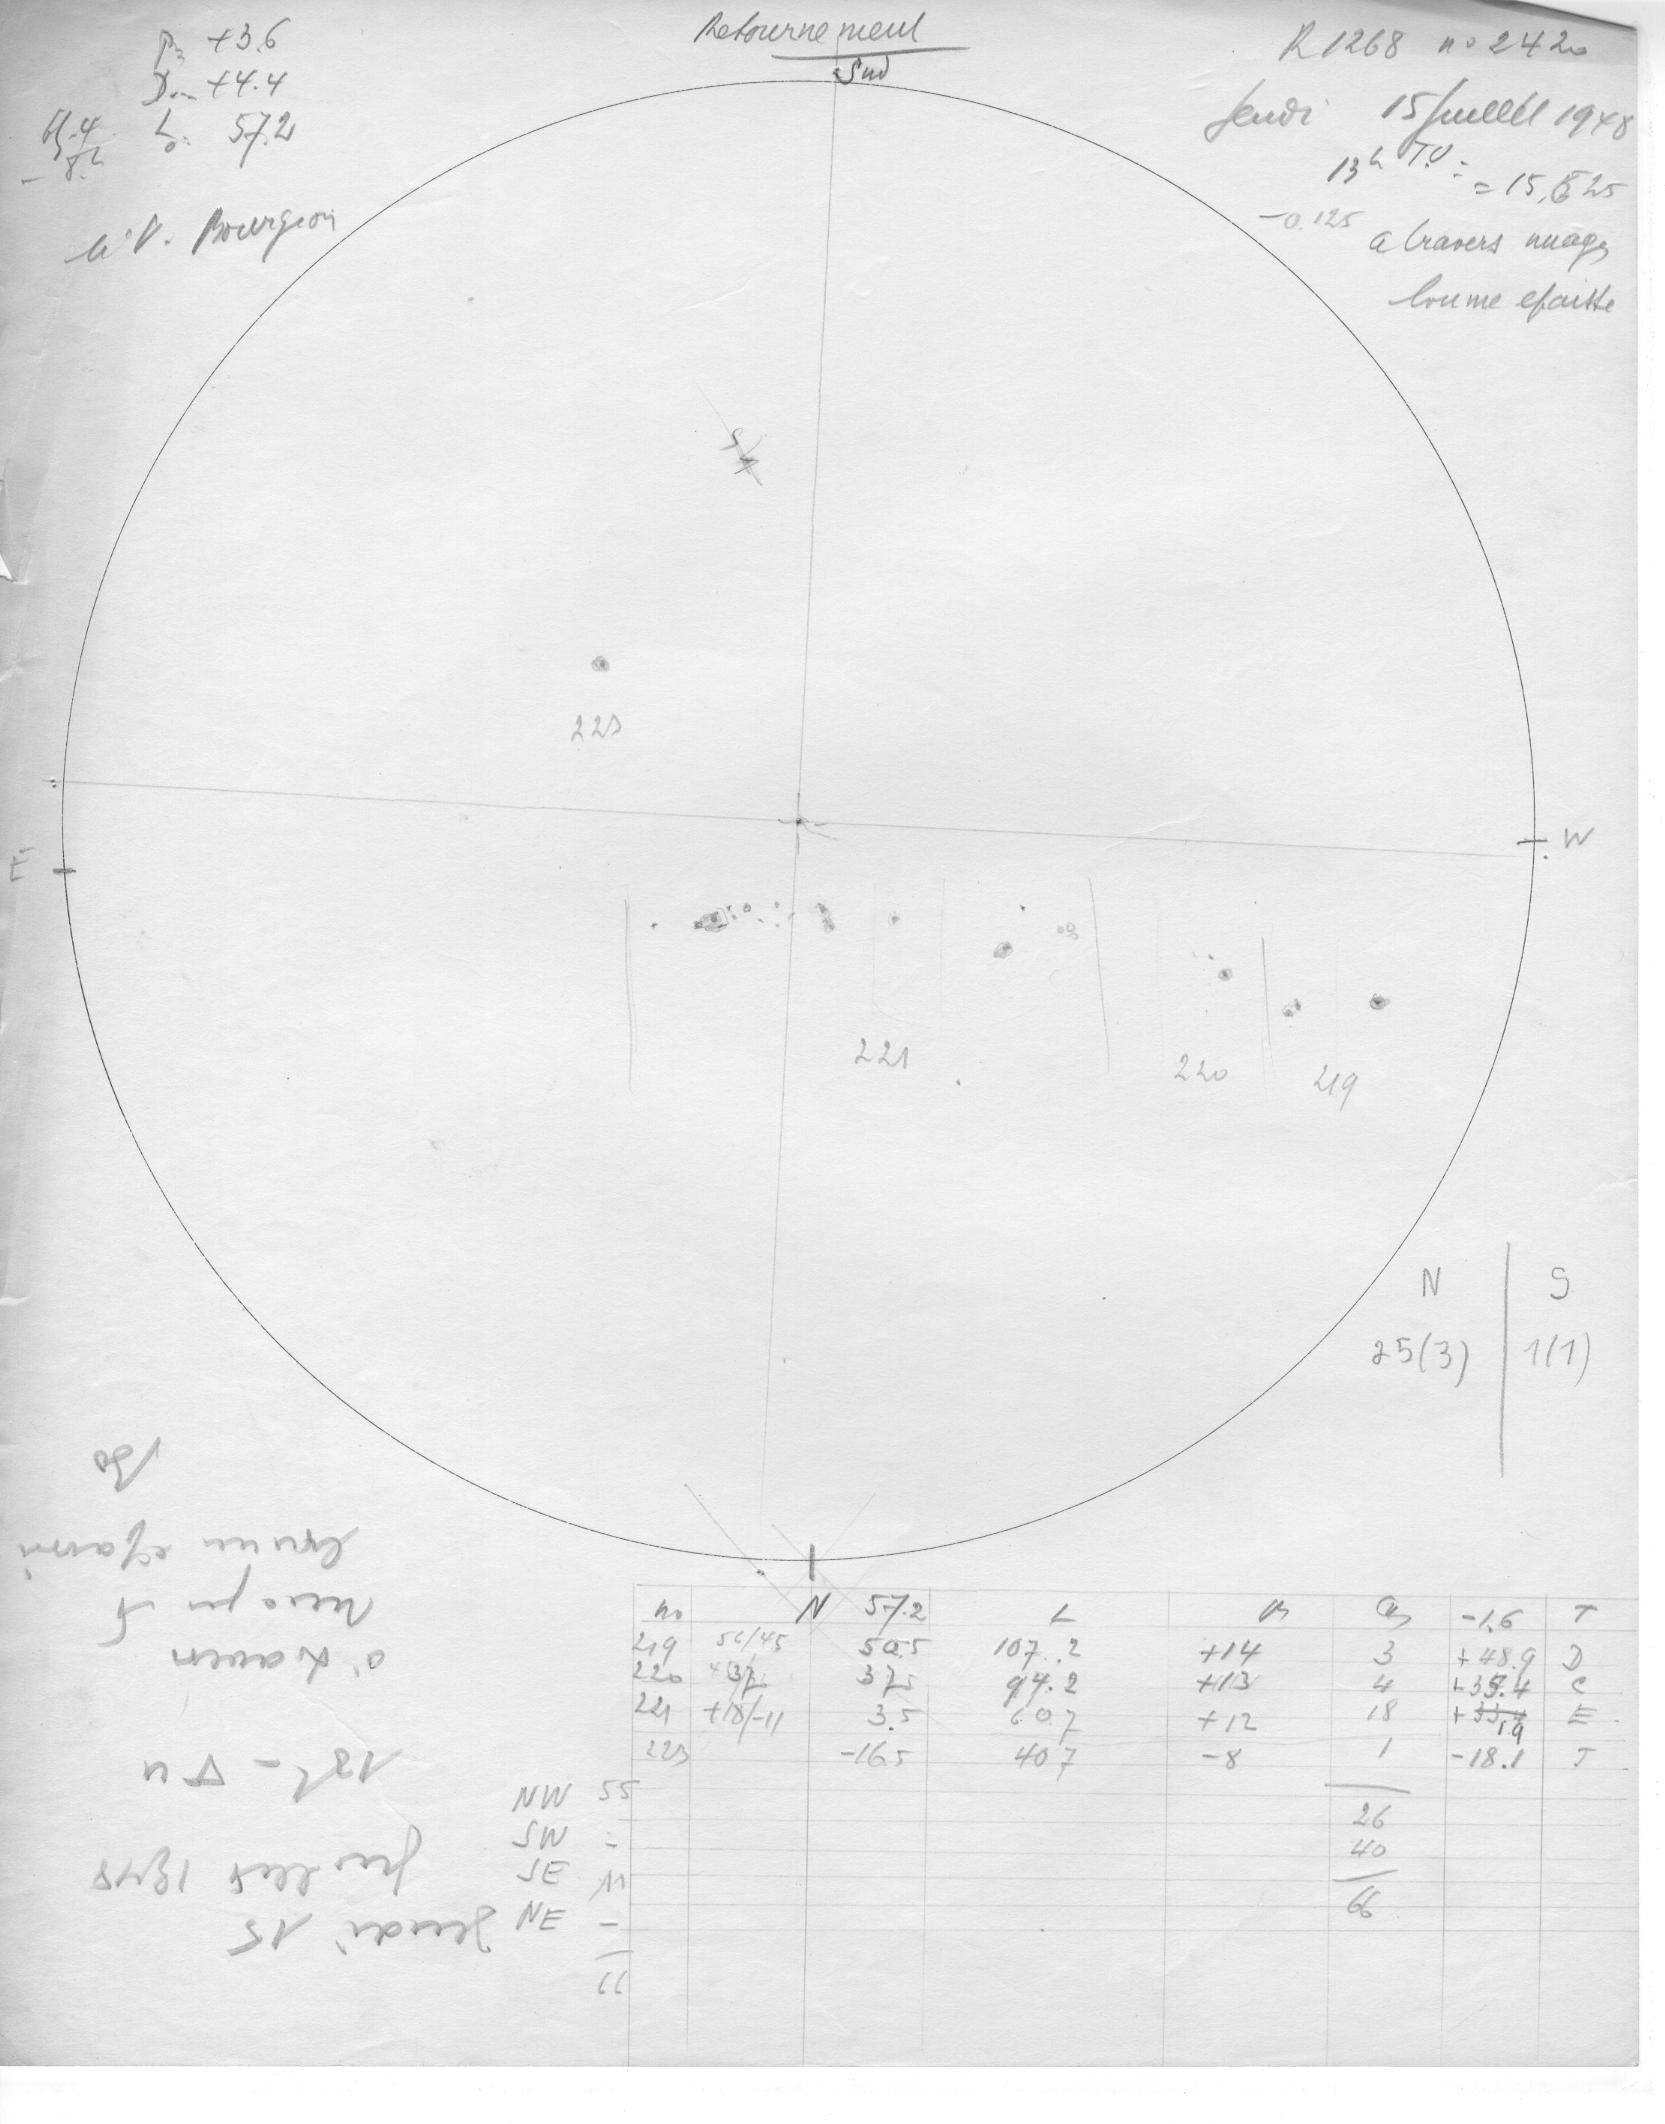 Retournement
Sud
P= +3.6
D= +4.4
Lo= 57.2
65.4
- 8.2
P. Bourgeois
R1268 no 2420
Jeudi 15 Juillet 1948
13h T.U.
= 15,525
-0.125
a travers nuages
brume epaisse
223
E
W
221
220
219
N | S
25(3) | 1(1)
N
no 57.2 L B -1.6 T
219 50.5 107.2 +14 3 +48.9 D
220 +37 37.5 94.2 +13 4 +35.4 C
221 +18/-11 3.5 60.7 +12 18 +1.9 E
223 -16.5 40.7 -8 1 -18.1 J
26
40
66
NW 55
SW -
SE 11
NE -
66
Jeudi 15
Juillet 1948
13h - TU
à travers
nuages
brume